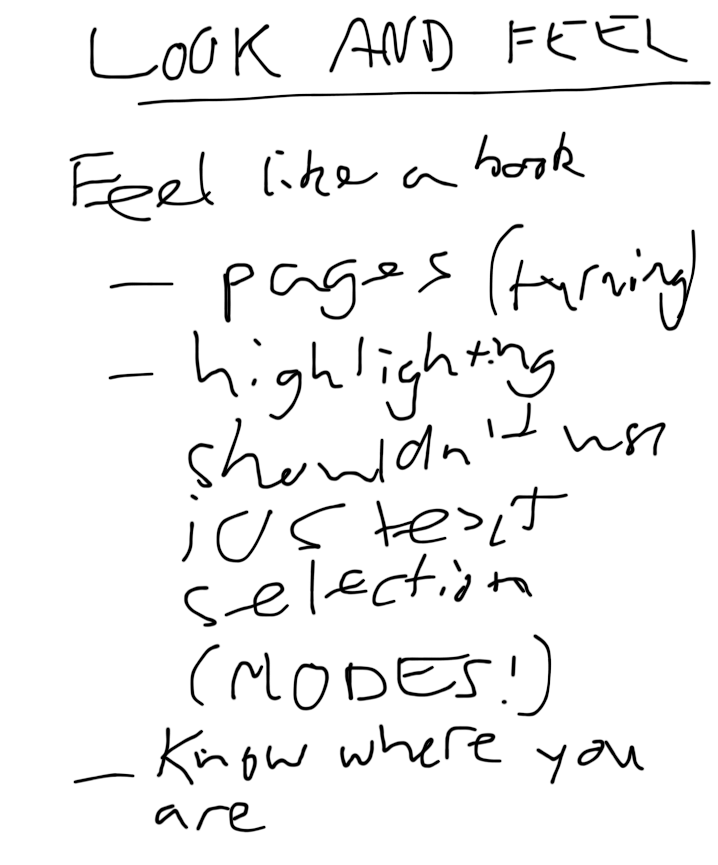 LOOK AND FEEL
Feel like a book
— pages (turning)
— highlighting
shouldn't use
iOS text
selection
(MODES!)
— Know where you
are